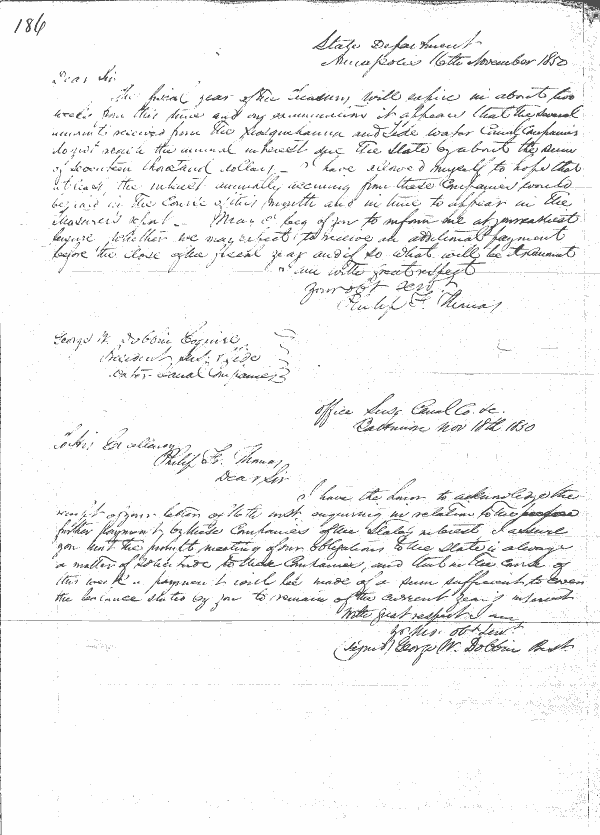 186
State Department
Annapolis 16th November 1850
Dear Sir
The fiscal year of the Treasury will expire in about two
weeks from this time and on examination it appears that the several
amounts received from the Susquehanna and Tide water Canal Companies
do not reach the annual interest due the State by about the sum
of seventeen thousand dollars - I have allowed myself to hope that
at least the interest annually accruing from these Companies would
be paid in the Course of this month and in time to appear in the
Treasurers
May I beg of you to inform me at your earliest
whether we may expect to receive an additional payment
before the close of the fiscal year and if so what will be its amount
I am with great respect
your obt servt
Philip F. Thomas
George W. Dobbin Esquire
President Sus. & Tide
water Canal Companies
Office Susq Canal Co. &c.
Baltimore Nov 18th 1850
To his Excellency
Philip F. Thomas
Dear Sir
I have the honor to acknowledge the
receipt of your letter of the 16th inst enquiring in relation to the
further payment by these Companies of the State's interest. I assure
you that the prompt meeting of our obligations to the State is always
a matter of solicitude to these Companies, and that in the course of
this week a payment will be made of a sum sufficient to cover
the balance stated by you to remain of the current year's interest
With great respect I am
yr obt servt
(signed) George W. Dobbin Prest